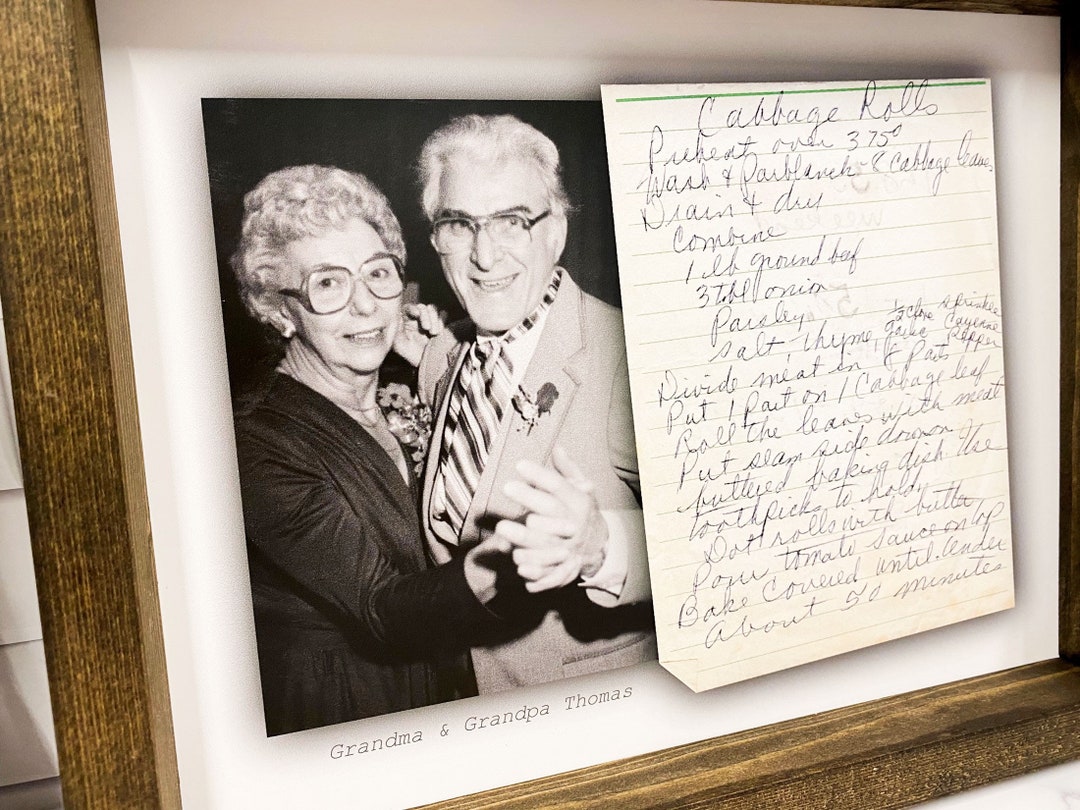 Cabbage Rolls
Preheat oven 375°
Wash & Parblanch 8 Cabbage leaves
Drain & dry
Combine
1 lb ground beef
3 tbl onion
Parsley
salt, thyme, 1/2 clove garlic, sprinkle Cayenne Pepper
Divide meat in 8 Parts
Put 1 Part on 1 Cabbage leaf
Roll the leaves with meat
Put seam side down on
buttered baking dish Use
toothpicks to hold
Dot rolls with butter
Pour tomato sauce on top
Bake Covered until tender
about 50 minutes
Grandma & Grandpa Thomas